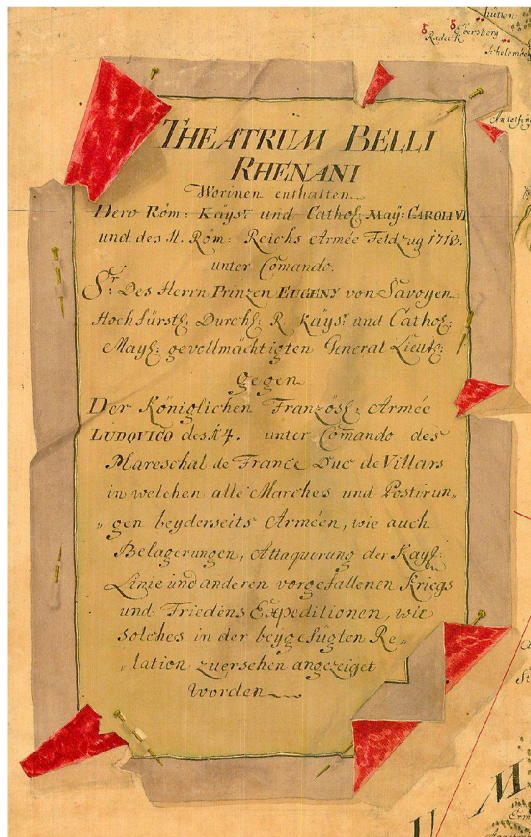 hütten
Ebersberg
Radeck
THEATRUM BELLI
RHENANI
Worinen enthalten
Dero Röm: Kayſ.r und Cathol: MAÿ: CAROLI VI
und des H. Röm: Reichs Armée Feldzug 1713.
unter Comando.
S.r Des Herrn Prinzen EUGENŸ von Savoyen
Hochfürstl: Durchl: R. Kayſ.r und Cathol:
Mayl: gevollmächtigten General Lieutl:
gegen
Der Königlichen Französl: Armée
LUDOVICO des 14. unter Comando des
Mareschal de France Duc de Villars
in welchen alle Marches und Postirun„
„gen beyderseits Arméen, wie auch
Belagerungen, Attaquerung der Kayl:
Linie und anderen vorgefallenen Kriegs
und Friedens Expeditionen, wie
solches in der beygefügten Re„
„lation zuersehen angezeiget
worden
U M